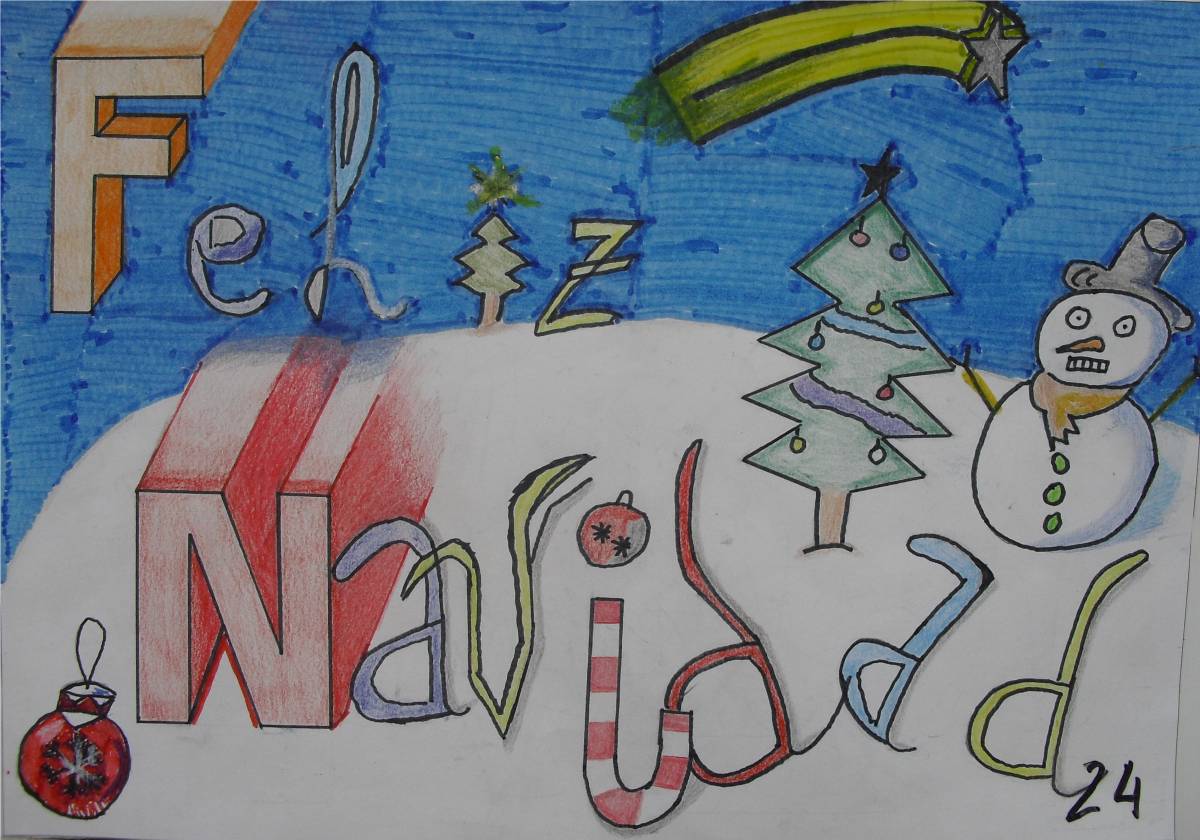 Feliz
Navidad
24